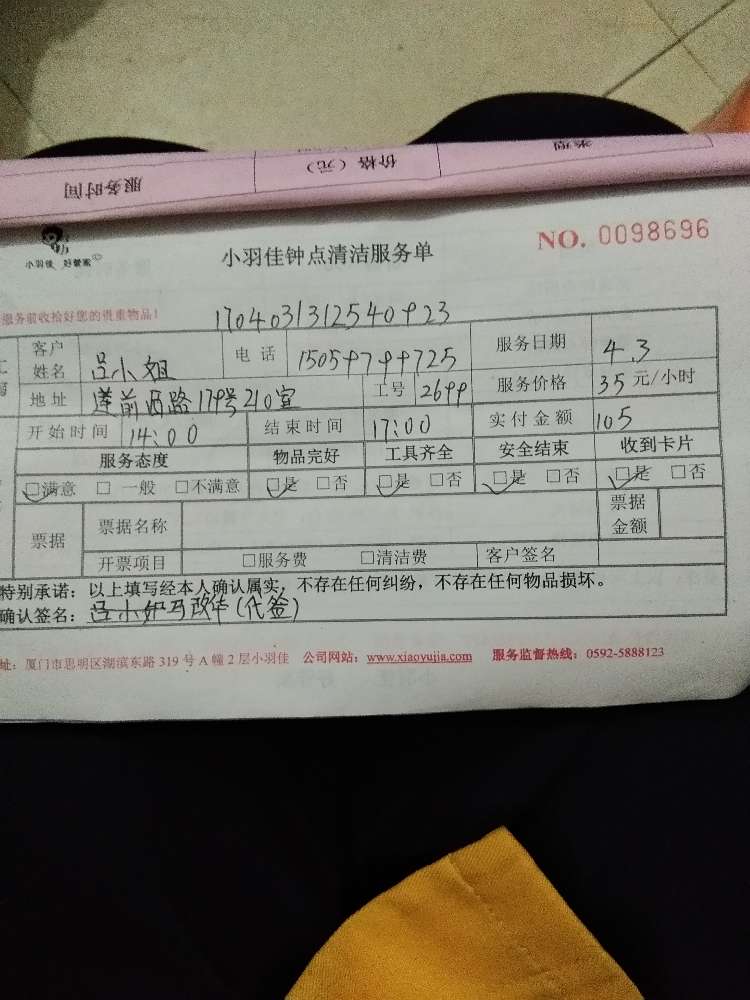 服务时间 价格（元） 类型
小羽佳 好管家
小羽佳钟点清洁服务单
NO. 0098696
服务前收拾好您的贵重物品！
170403131254０923
客户姓名 吕小姐 电话 15059799725 服务日期 4.3
地址 莲前西路179号210室 工号 2699 服务价格 35 元/小时
开始时间 14:00 结束时间 17:00 实付金额 105
服务态度 物品完好 工具齐全 安全结束 收到卡片
□满意 □一般 □不满意 □是 □否 □是 □否 □是 □否 □是 □否
票据 票据名称 票据金额
开票项目 □服务费 □清洁费 客户签名
特别承诺：以上填写经本人确认属实，不存在任何纠纷，不存在任何物品损坏。
确认签名：吕小姐（代签）
址：厦门市思明区湖滨东路 319 号 A 幢 2 层小羽佳 公司网站：www.xiaoyujia.com 服务监督热线：0592-5888123